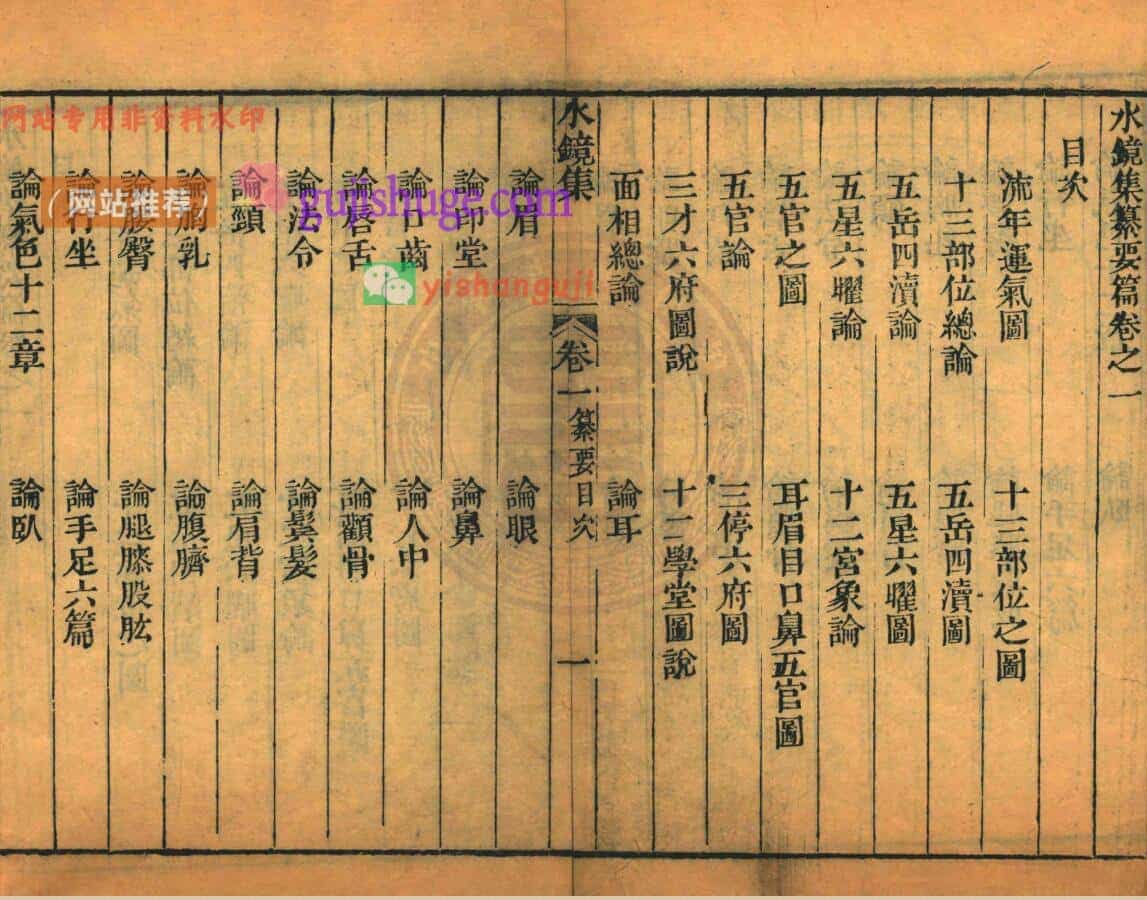 水鏡集纂要篇卷之一
目次
流年運氣圖　十三部位之圖
十三部位總論　五岳四瀆圖
五岳四瀆論　五星六曜圖
五星六曜論　十二宮象論
五官之圖　耳眉目口鼻五官圖
五官論　三停六府圖
三才六府圖說　十二學堂圖說
面相總論　論耳
水鏡集　卷一　纂要　目次　一
論眉　論眼
論印堂　論鼻
論口齒　論人中
論唇舌　論顴骨
論法令　論鬓髮
論頸　論肩背
論胸乳　論腹臍
論腰臀　論腿膝股肱
論行坐　論手足六篇
論氣色十二章　論臥
网站专用非资料水印
(网站推荐)
gujishuge.com
yishanguji